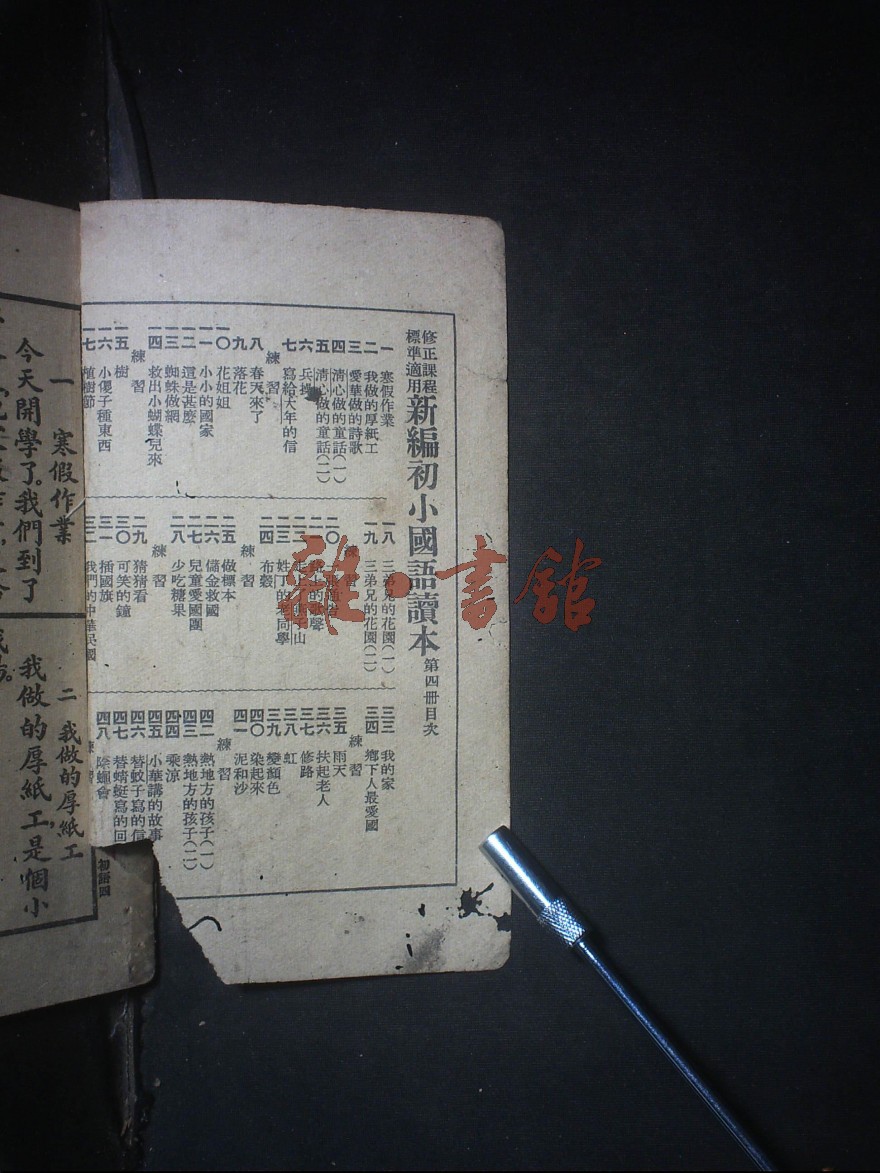 修正課程
標準適用
新編初小國語讀本 第四冊目次
一 寒假作業
二 我做的厚紙工
三 愛華做的詩歌
四 清心做的童話(一)
五 清心做的童話(二)
六 兵操
七 寫給大年的信
練習
八 春天來了
九 落花
一〇 花姐姐
一一 小小的國家
一二 這是甚麼
一三 蜘蛛做網
一四 救出小蝴蝶兒來
練習
一五 樹
一六 小儍子種東西
一七 植樹節
一八 三弟兄的花園(一)
一九 三弟兄的花園(二)
練習
二〇
二一 上的歌聲
二二 山
二三 姓丁的老同學
二四 布穀
練習
二五 做標本
二六 儲金救國
二七 兒童愛國團
二八 少吃糖果
練習
二九 猜猜看
三〇 可笑的鐘
三一 插國旗
三二 我們的中華民國
三三 我的家
三四 鄉下人最愛國
練習
三五 雨天
三六 扶起老人
三七 修路
三八 虹
三九 變顏色
四〇 染起來
四一 泥和沙
練習
四二 熱地方的孩子(一)
四三 熱地方的孩子(二)
四四 乘涼
四五 小華講的故事
四六 替蚊子寫的信
四七 替蜻蜓寫的回
四八 除蠅會
練習
初語四
一 寒假作業
今天開學了。我們到了
二 我做的厚紙工
我做的厚紙工,是個小
雜·書館